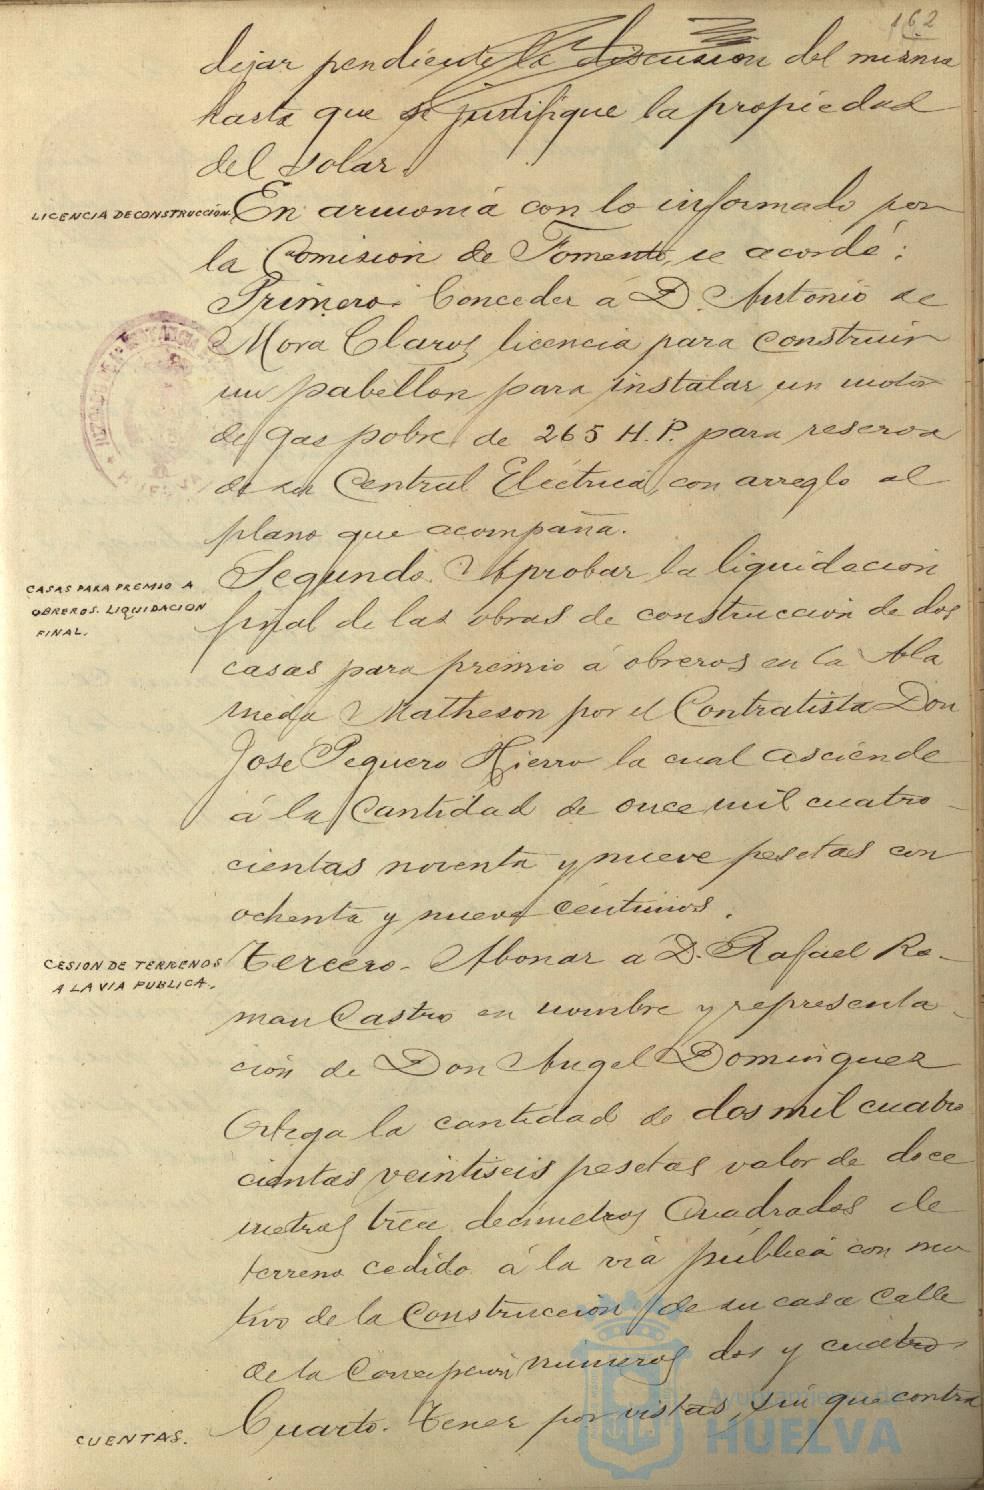 162
dejar pendiente la discusion del mismo
hasta que se justifique la propiedad
del solar.
LICENCIA DE CONSTRUCCIÓN.
En armonía con lo informado por
la Comision de Fomento, se acordó:
Primero. Conceder á D. Antonio de
Mora Claros licencia para construir
un pabellon para instalar un motor
de gas pobre de 265 H.P. para reserva
de su Central Eléctrica, con arreglo al
plano que acompaña.
CASAS PARA PREMIO A
OBREROS. LIQUIDACION
FINAL.
Segundo. Aprobar la liquidacion
final de las obras de construccion de dos
casas para premio á obreros en la Ala
meda Matheson por el Contratista Don
José Peguero Hierro la cual asciende
á la cantidad de once mil cuatro-
cientas noventa y nueve pesetas con
ochenta y nueve céntimos.
CESION DE TERRENOS
A LA VIA PUBLICA.
Tercero. Abonar a D. Rafael Ro-
man Castro en nombre y representa-
ción de Don Angel Dominguez
Ortega la cantidad de dos mil cuatro
cientas veintiseis pesetas valor de doce
metros trece decimetros cuadrados de
terreno cedido á la via pública con mo
tivo de la construccion de su casa calle
de la Concepcion números dos y cuatro
CUENTAS.
Cuarto. Tener por vistas, sin que contra
Ayuntamiento de
HUELVA